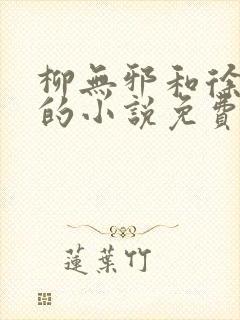 柳無邪和徐
的小説免費
蓮葉竹